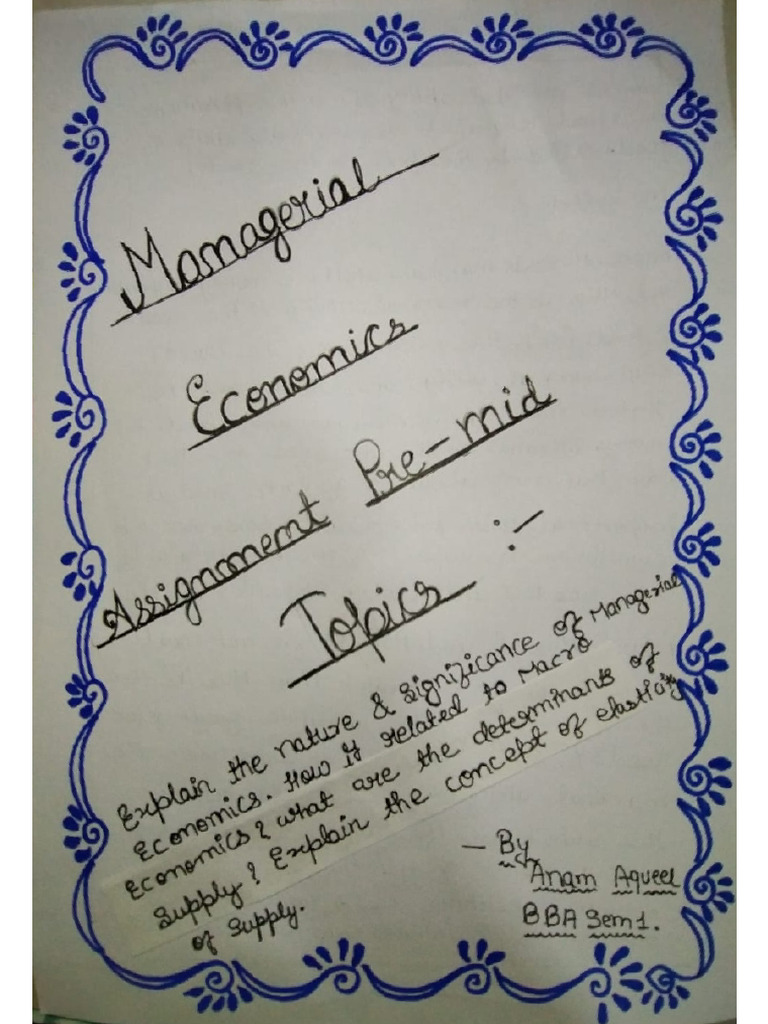 Managerial
Economics
Assignment Pre-mid
Topics :-
Explain the nature & significance of Managerial
Economics. How it related to Macro
Economics? what are the determinants of
Supply? Explain the concept of elasticity
of Supply.
- By
Anam Aqueel
BBA Sem 1.